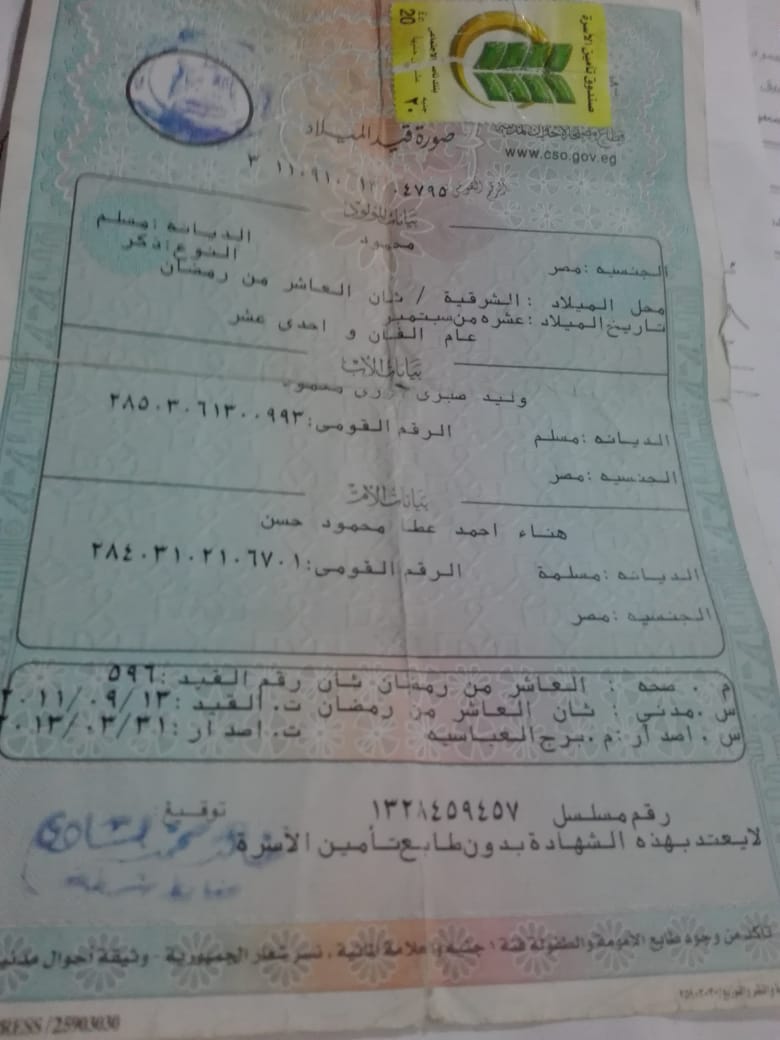 صندوق تأمين الأسرة
20
جنيه ٢٠
www.cso.gov.eg
صورة قيد الميلاد
الرقم القومى
٣ ١١٠٩١٠ ١٣ ٠٤٧٩٥
بيانات المولود
محمود
الديانه :مسلم
الجنسيه :مصر
النوع :ذكر
محل الميلاد : الشرقية / ثان العاشر من رمضان
تاريخ الميلاد :عشره من سبتمبر
عام الفان و احدى عشر
بيانات الأب
وليد صبرى
الديانه :مسلم
الرقم القومى:٢٨٥٠٣٠٦١٣٠٠٩٩٣
الجنسيه :مصر
بيانات الأم
هناء احمد عطا محمود حسن
الديانه :مسلمة
الرقم القومى:٢٨٤٠٣١٠٢١٠٦٧٠١
الجنسيه :مصر
م . صحه : العاشر من رمضان ثان رقم القيد :٥٩٦
س .مدني : ثان العاشر من رمضان ت. القيد :٢٠١١/٠٩/١٣
س . اصدار :م.برج العباسيه ت. اصدار :٢٠١٣/٠٣/٣١
رقم مسلسل ١٣٢٨٤٥٩٤٥٧
توقيع:
لايعتد بهذه الشهادة بدون طابع تأمين الأسرة
تأكد من وجود طابع الأمومة والطفولة فئة ١ جنيه و علامة المائية ، نسر شعار الجمهورية - وثيقة أحوال
RESS /25903030